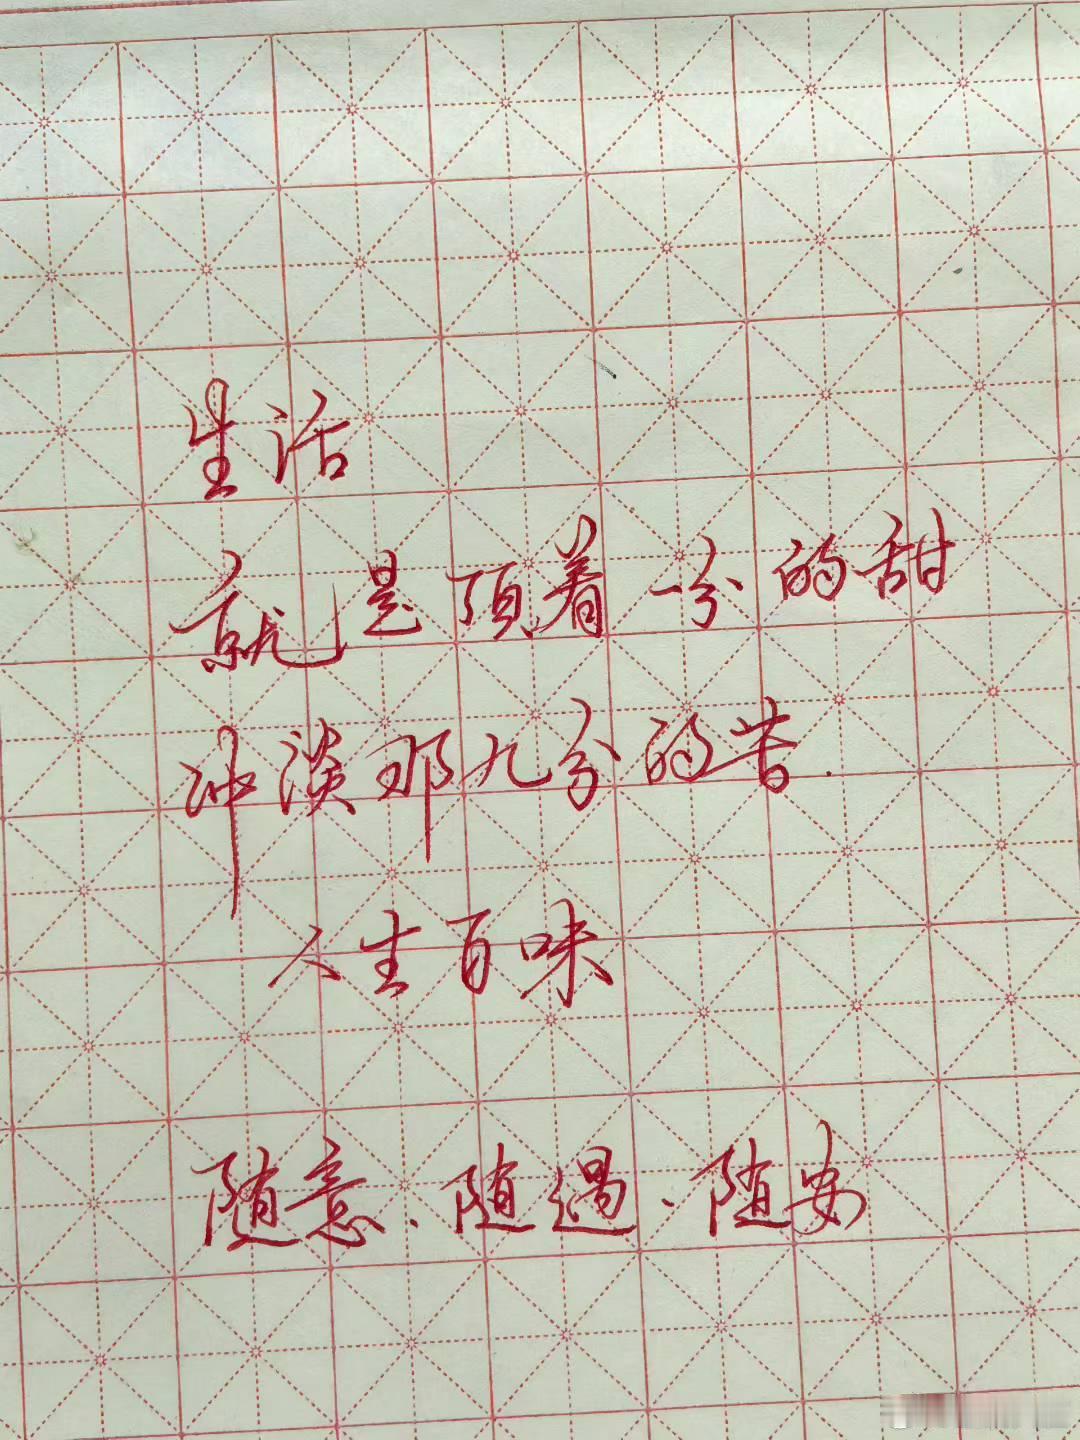 生活
就是顶着一分的甜
冲淡那九分的苦.
人生百味
随意、随遇、随安